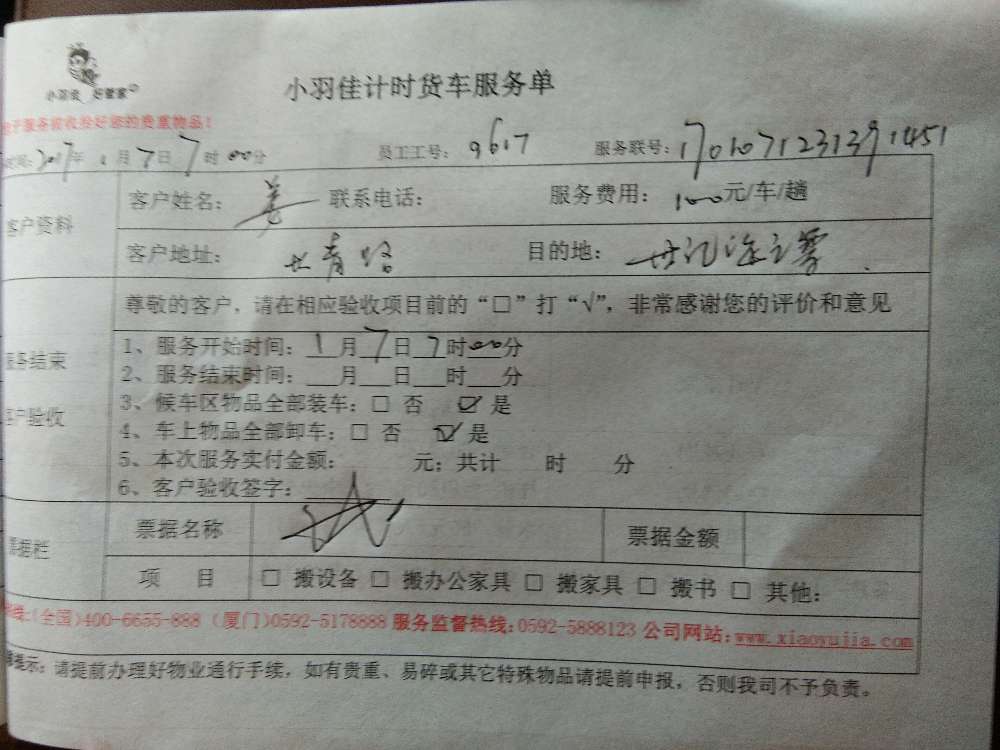 小羽佳 好管家
服务前收捡好您的贵重物品!
小羽佳计时货车服务单
时间:2017年1月7日7时00分 员工工号:9617 服务联号:1701071231391451
客户资料
客户姓名:姜 联系电话: 服务费用:100元/车/趟
客户地址: 长青路 目的地:世纪海之雾
尊敬的客户,请在相应验收项目前的“□”打“√”,非常感谢您的评价和意见
服务结束
客户验收
1、服务开始时间:1月7日7时00分
2、服务结束时间:___月___日___时___分
3、候车区物品全部装车:□ 否 ☑ 是
4、车上物品全部卸车:□ 否 ☑ 是
5、本次服务实付金额: 元;共计 时 分
6、客户验收签字:
票据栏
票据名称 票据金额
项 目 □ 搬设备 □ 搬办公家具 □ 搬家具 □ 搬书 □ 其他:
热线:(全国)400-6655-888 (厦门)0592-5178888 服务监督热线:0592-5888123 公司网站:www.xiaoyujia.com
提示:请提前办理好物业通行手续,如有贵重、易碎或其它特殊物品请提前申报,否则我司不予负责。